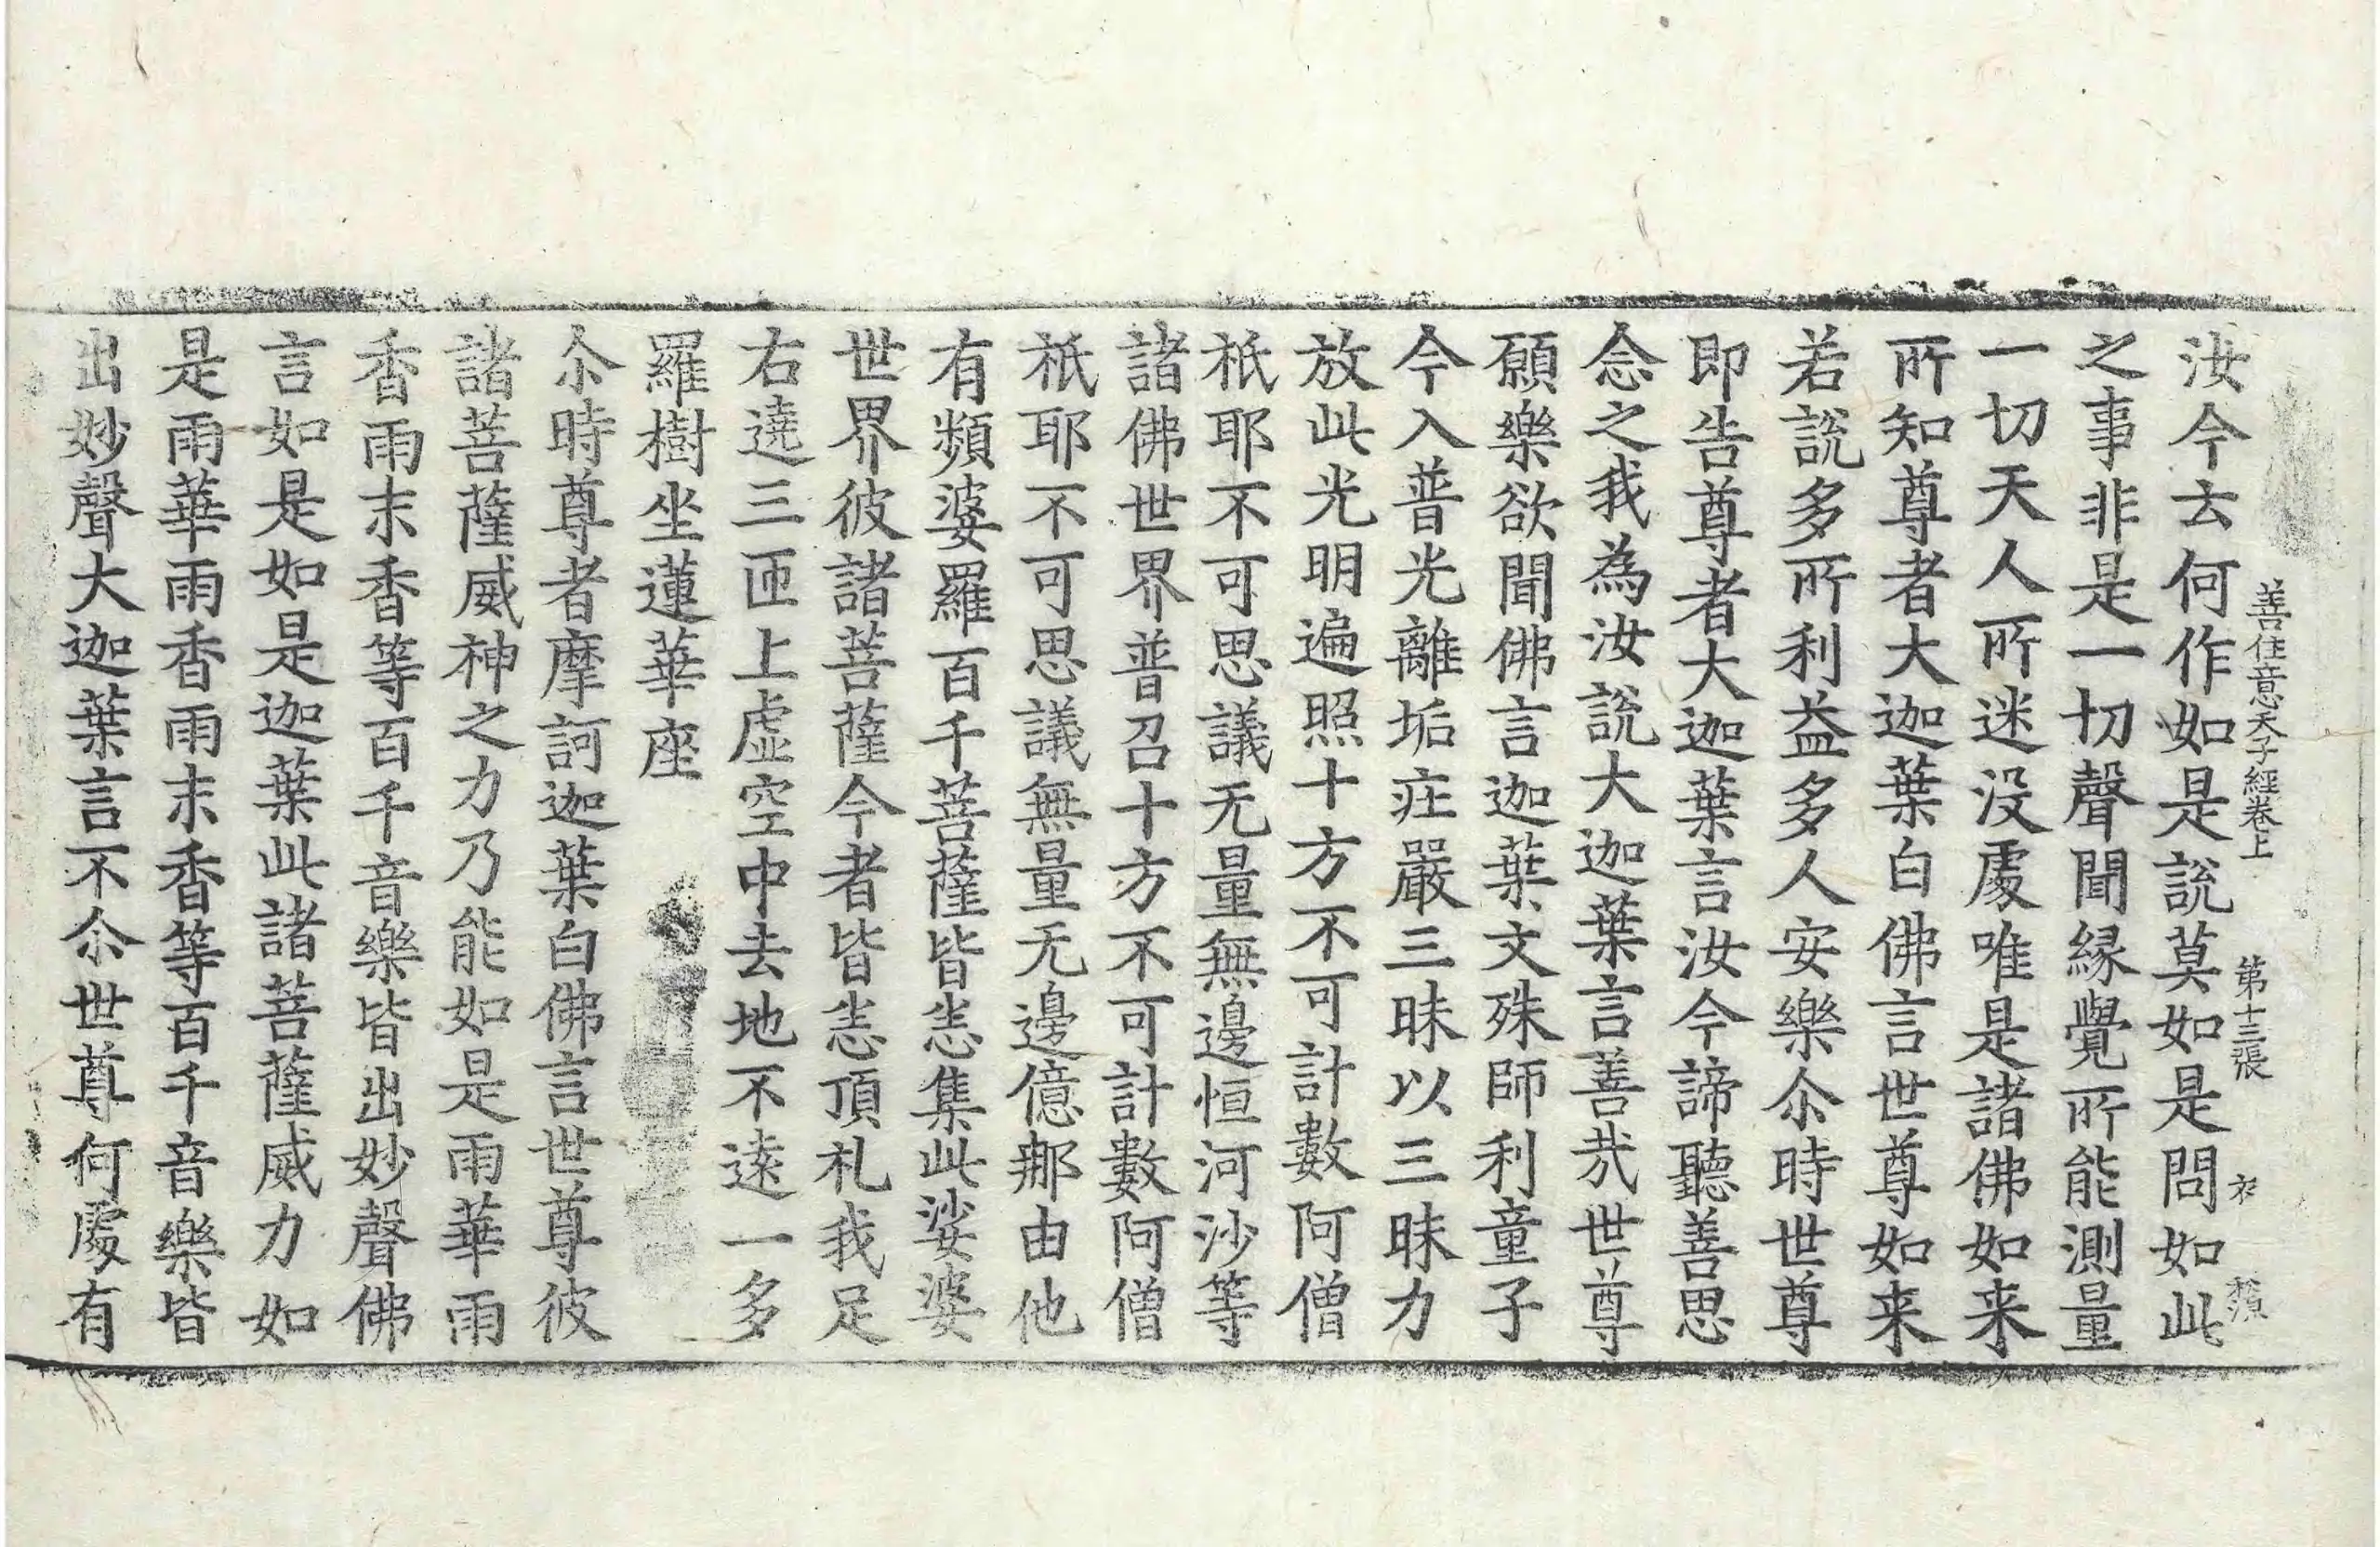 善住意天子經卷上 第十三張 衣
汝今云何作如是說莫如是問如此
之事非是一切聲聞緣覺所能測量
一切天人所迷没處唯是諸佛如来
所知尊者大迦葉白佛言世尊如来
若說多所利益多人安樂尒時世尊
即告尊者大迦葉言汝今諦聽善思
念之我為汝說大迦葉言善哉世尊
願樂欲聞佛言迦葉文殊師利童子
今入普光離垢庄嚴三昧以三昧力
放此光明遍照十方不可計數阿僧
祇耶不可思議无量無邊恒河沙等
諸佛世界普召十方不可計數阿僧
祇耶不可思議無量无邊億那由他
有頻婆羅百千菩薩皆悉集此娑婆
世界彼諸菩薩今者皆悉頂礼我足
右遶三匝上虛空中去地不遠一多
羅樹坐蓮華座
尒時尊者摩訶迦葉白佛言世尊彼
諸菩薩威神之力乃能如是雨華雨
香雨末香等百千音樂皆出妙聲佛
言如是如是迦葉此諸菩薩威力如
是雨華雨香雨末香等百千音樂皆
出妙聲大迦葉言不尒世尊何處有